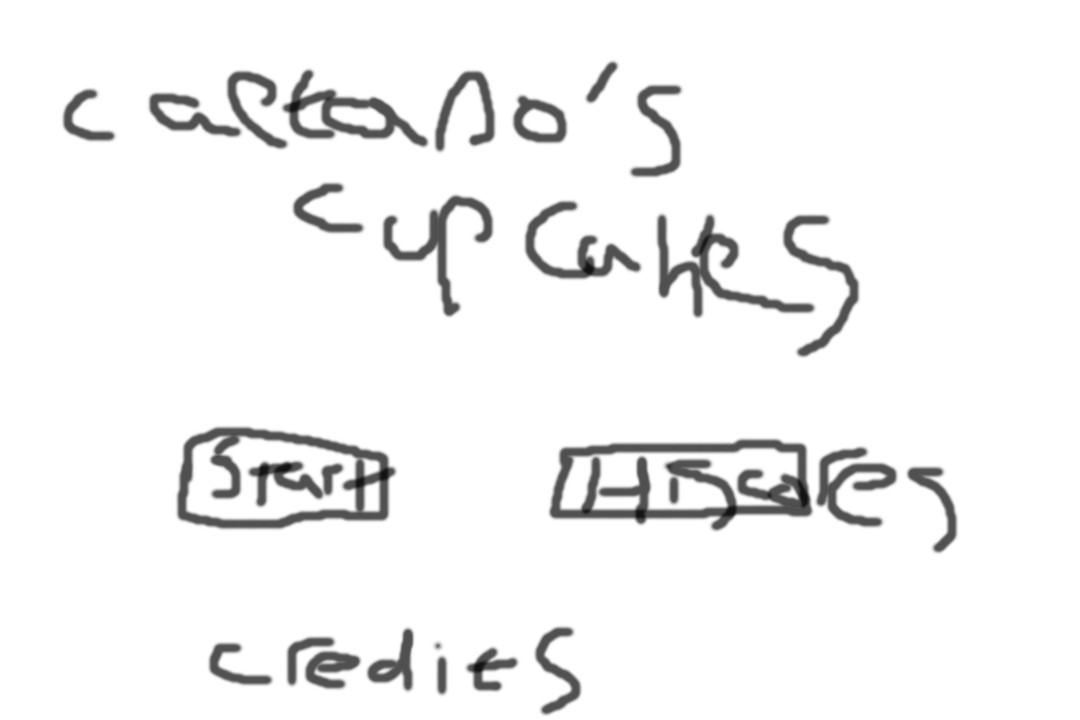 caltano's
cupcakes
Start Hi Scores
credits